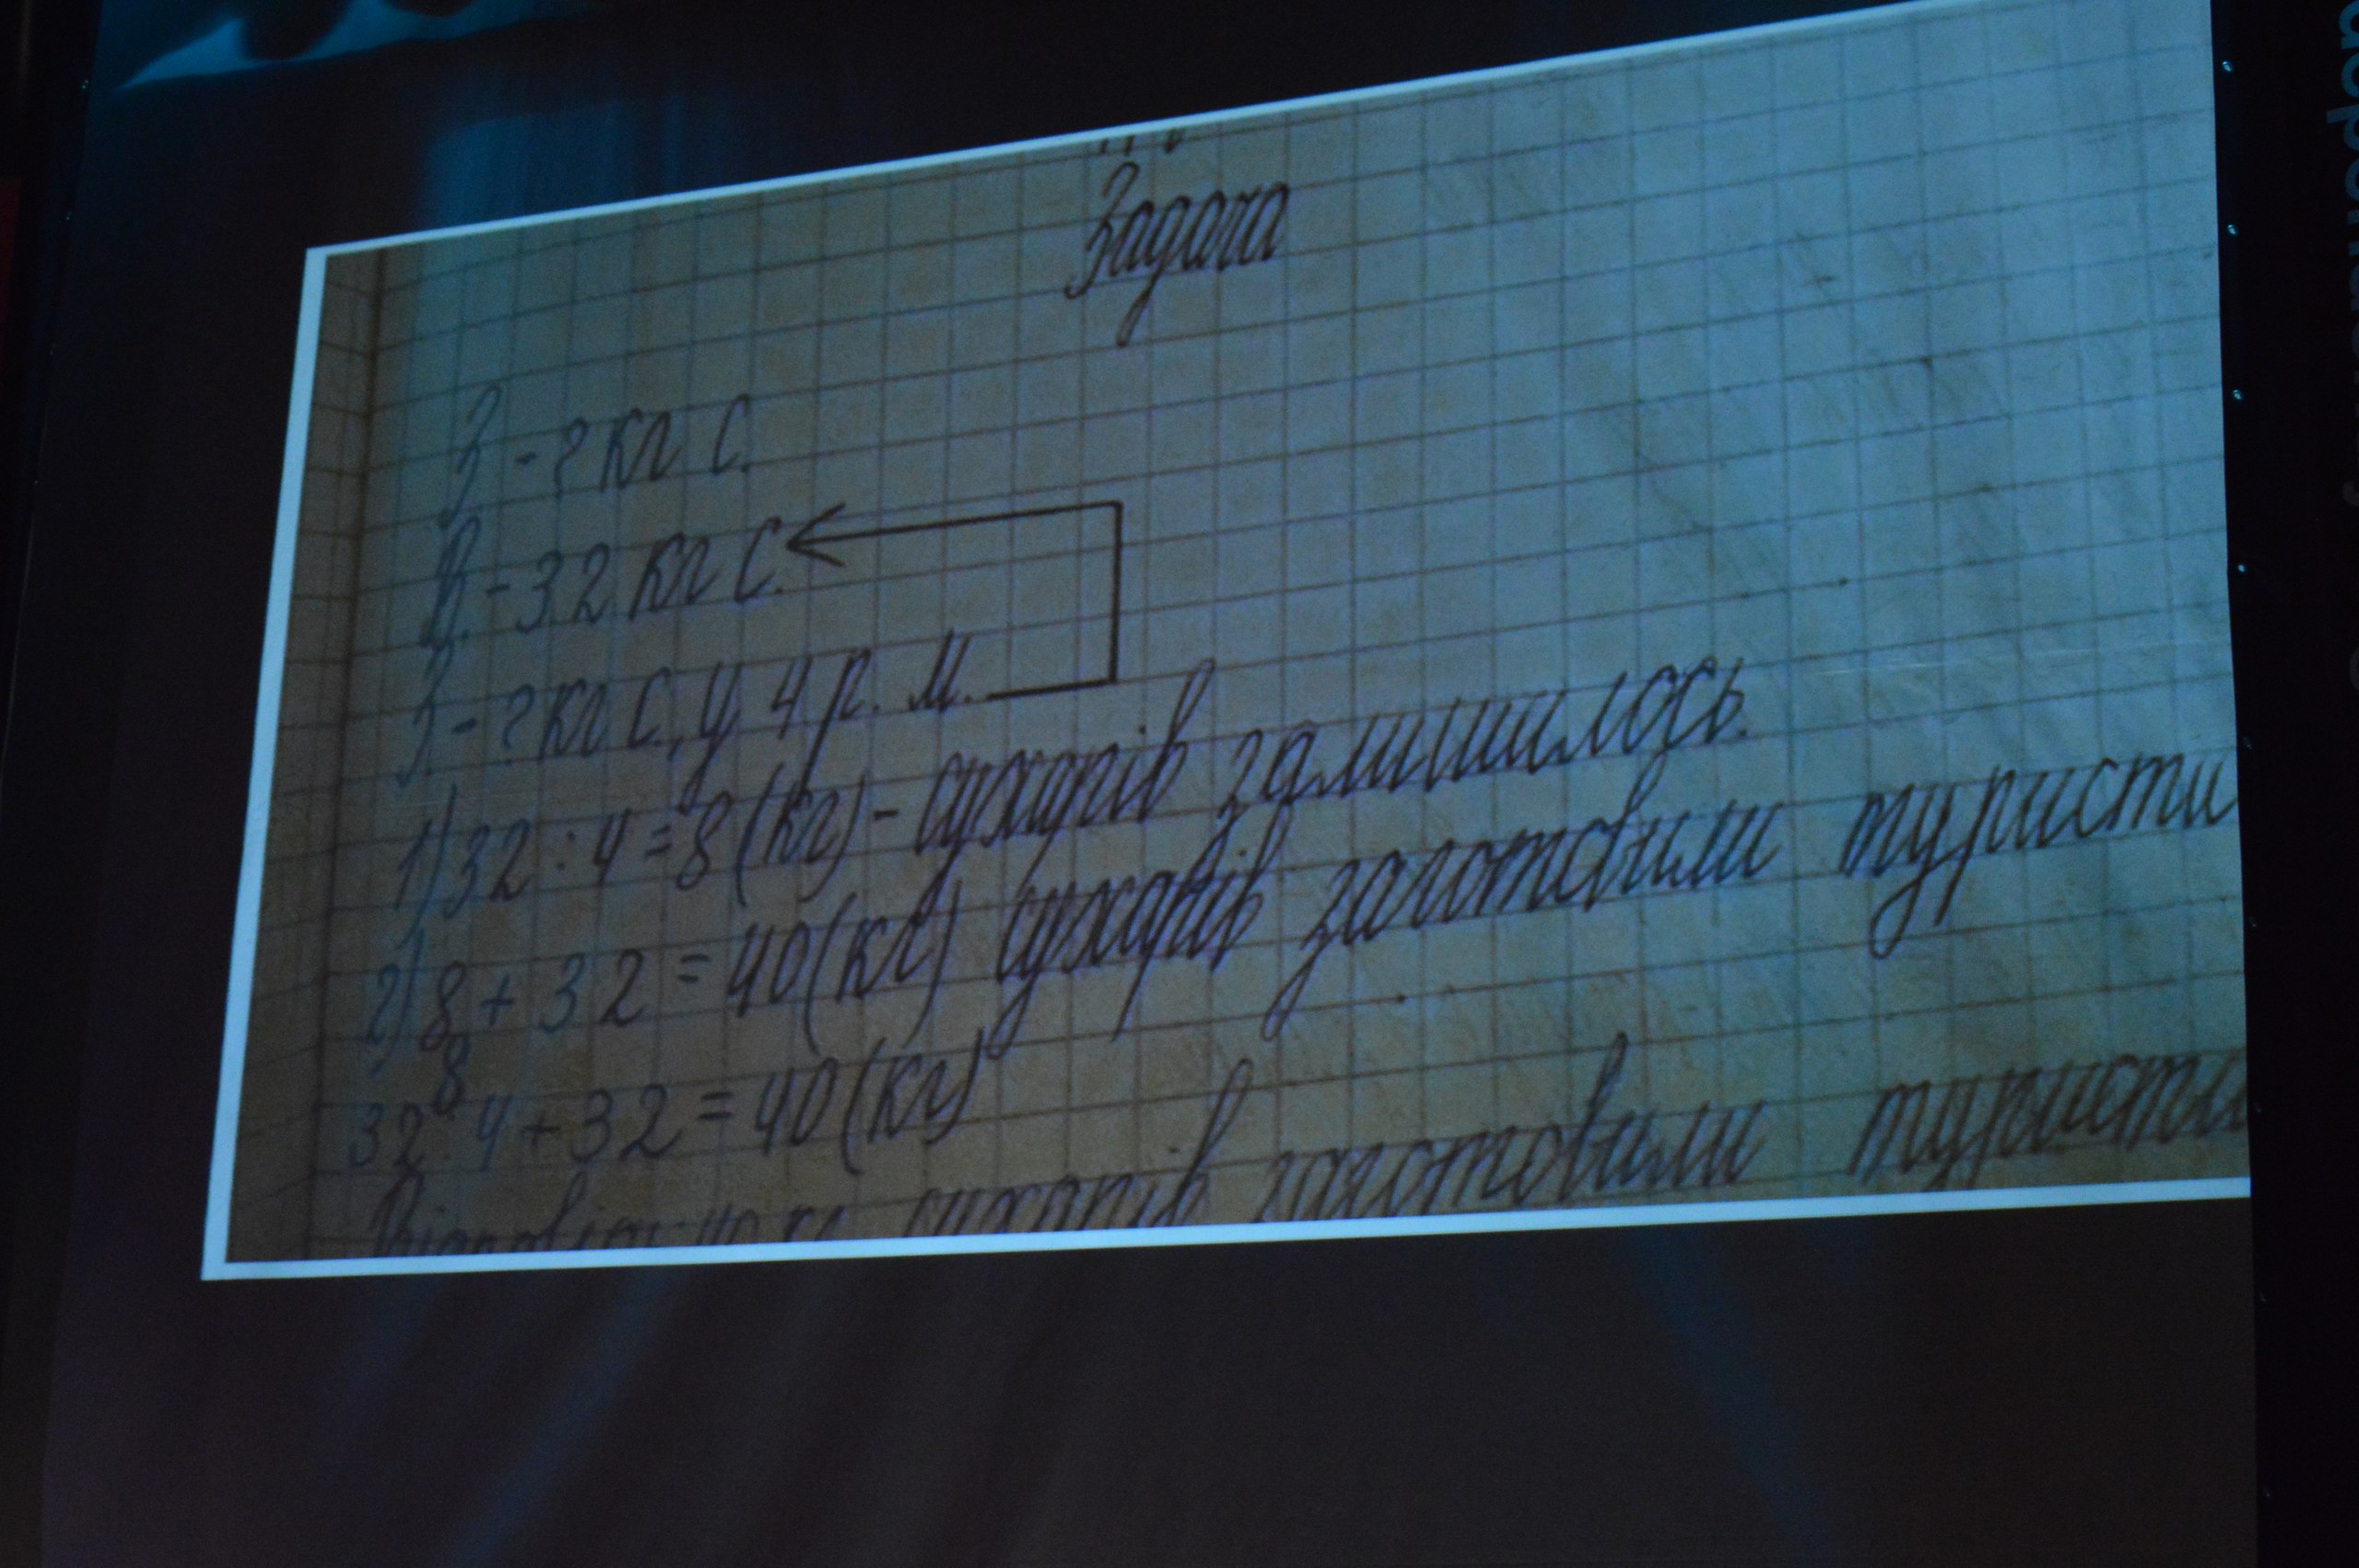 Задача
З - ? кг с.
В. - 32 кг с.
З - ? кг с., у 4 р. м.
1) 32 : 4 = 8 (кг) - сухарів залишилось.
2) 8 + 32 = 40 (кг) сухарів заготовили туристи
8
32 : 4 + 32 = 40 (кг)
Відповідь: 40 кг сухарів заготовили туристи